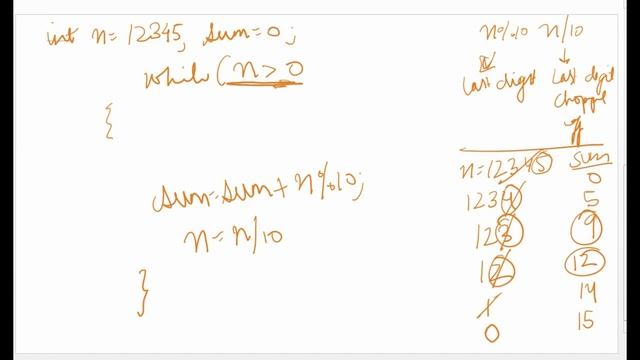 int n=12345, sum=0;
while(n>0
{
sum=sum+n%10;
n=n/10
}
n%10 n/10
Last digit Last digit
chopped off
n=12345 sum
0
1234 5
123 9
12 12
1 14
0 15